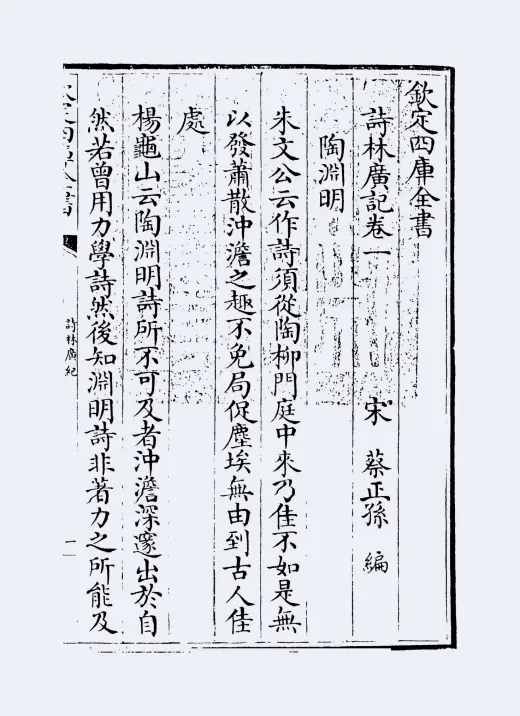 欽定四庫全書
詩林廣記卷一
宋 蔡正孫 編
陶淵明
朱文公云作詩須從陶柳門庭中來乃佳不如是無
以發蕭散沖澹之趣不免局促塵埃無由到古人佳
處
楊龜山云陶淵明詩所不可及者沖澹深邃出於自
然若曾用力學詩然後知淵明詩非著力之所能及
詩林廣紀
一